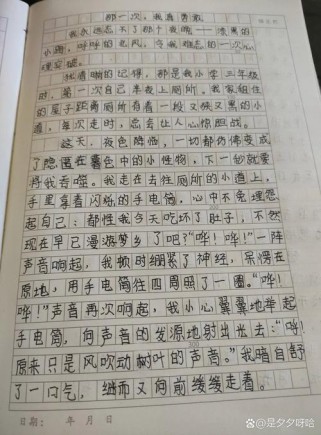 那一次，我真勇敢
我永远忘不了那个夜晚——漆黑的
小路，呼呼的电风，令我难忘的一次
理穿梭。
我清晰的记得，那是我小学三年级
时，第一次自己半夜上厕所。我家租住
的屋子距离厕所有着一段又狭又黑的小
道，每次走时，总会让人心惊胆战。
这天，夜色降临，一切都仿佛变成
了隐匿在暮色中的小怪物，下一秒就要
将我吞噬。我走在去往厕所的小道上，
手里拿着闪烁的手电筒，心中不免埋怨
起自己：都怪我今天吃坏了肚子，不然
现在早已漫游梦乡了吧？“哗！哗！”一阵
声音响起，我顿时绷紧了神经，呆愣在
原地，用手电筒往四周照了一圈。“哗！
哗！”声音再次响起，我小心翼翼地举起
手电筒，向声音的发源地射出光去：“哗！
原来只是风吹动树叶的声音。”我暗自舒
了一口气，继而又向前缓缓走着。
日期： 年 月 日
@是夕夕呀哈